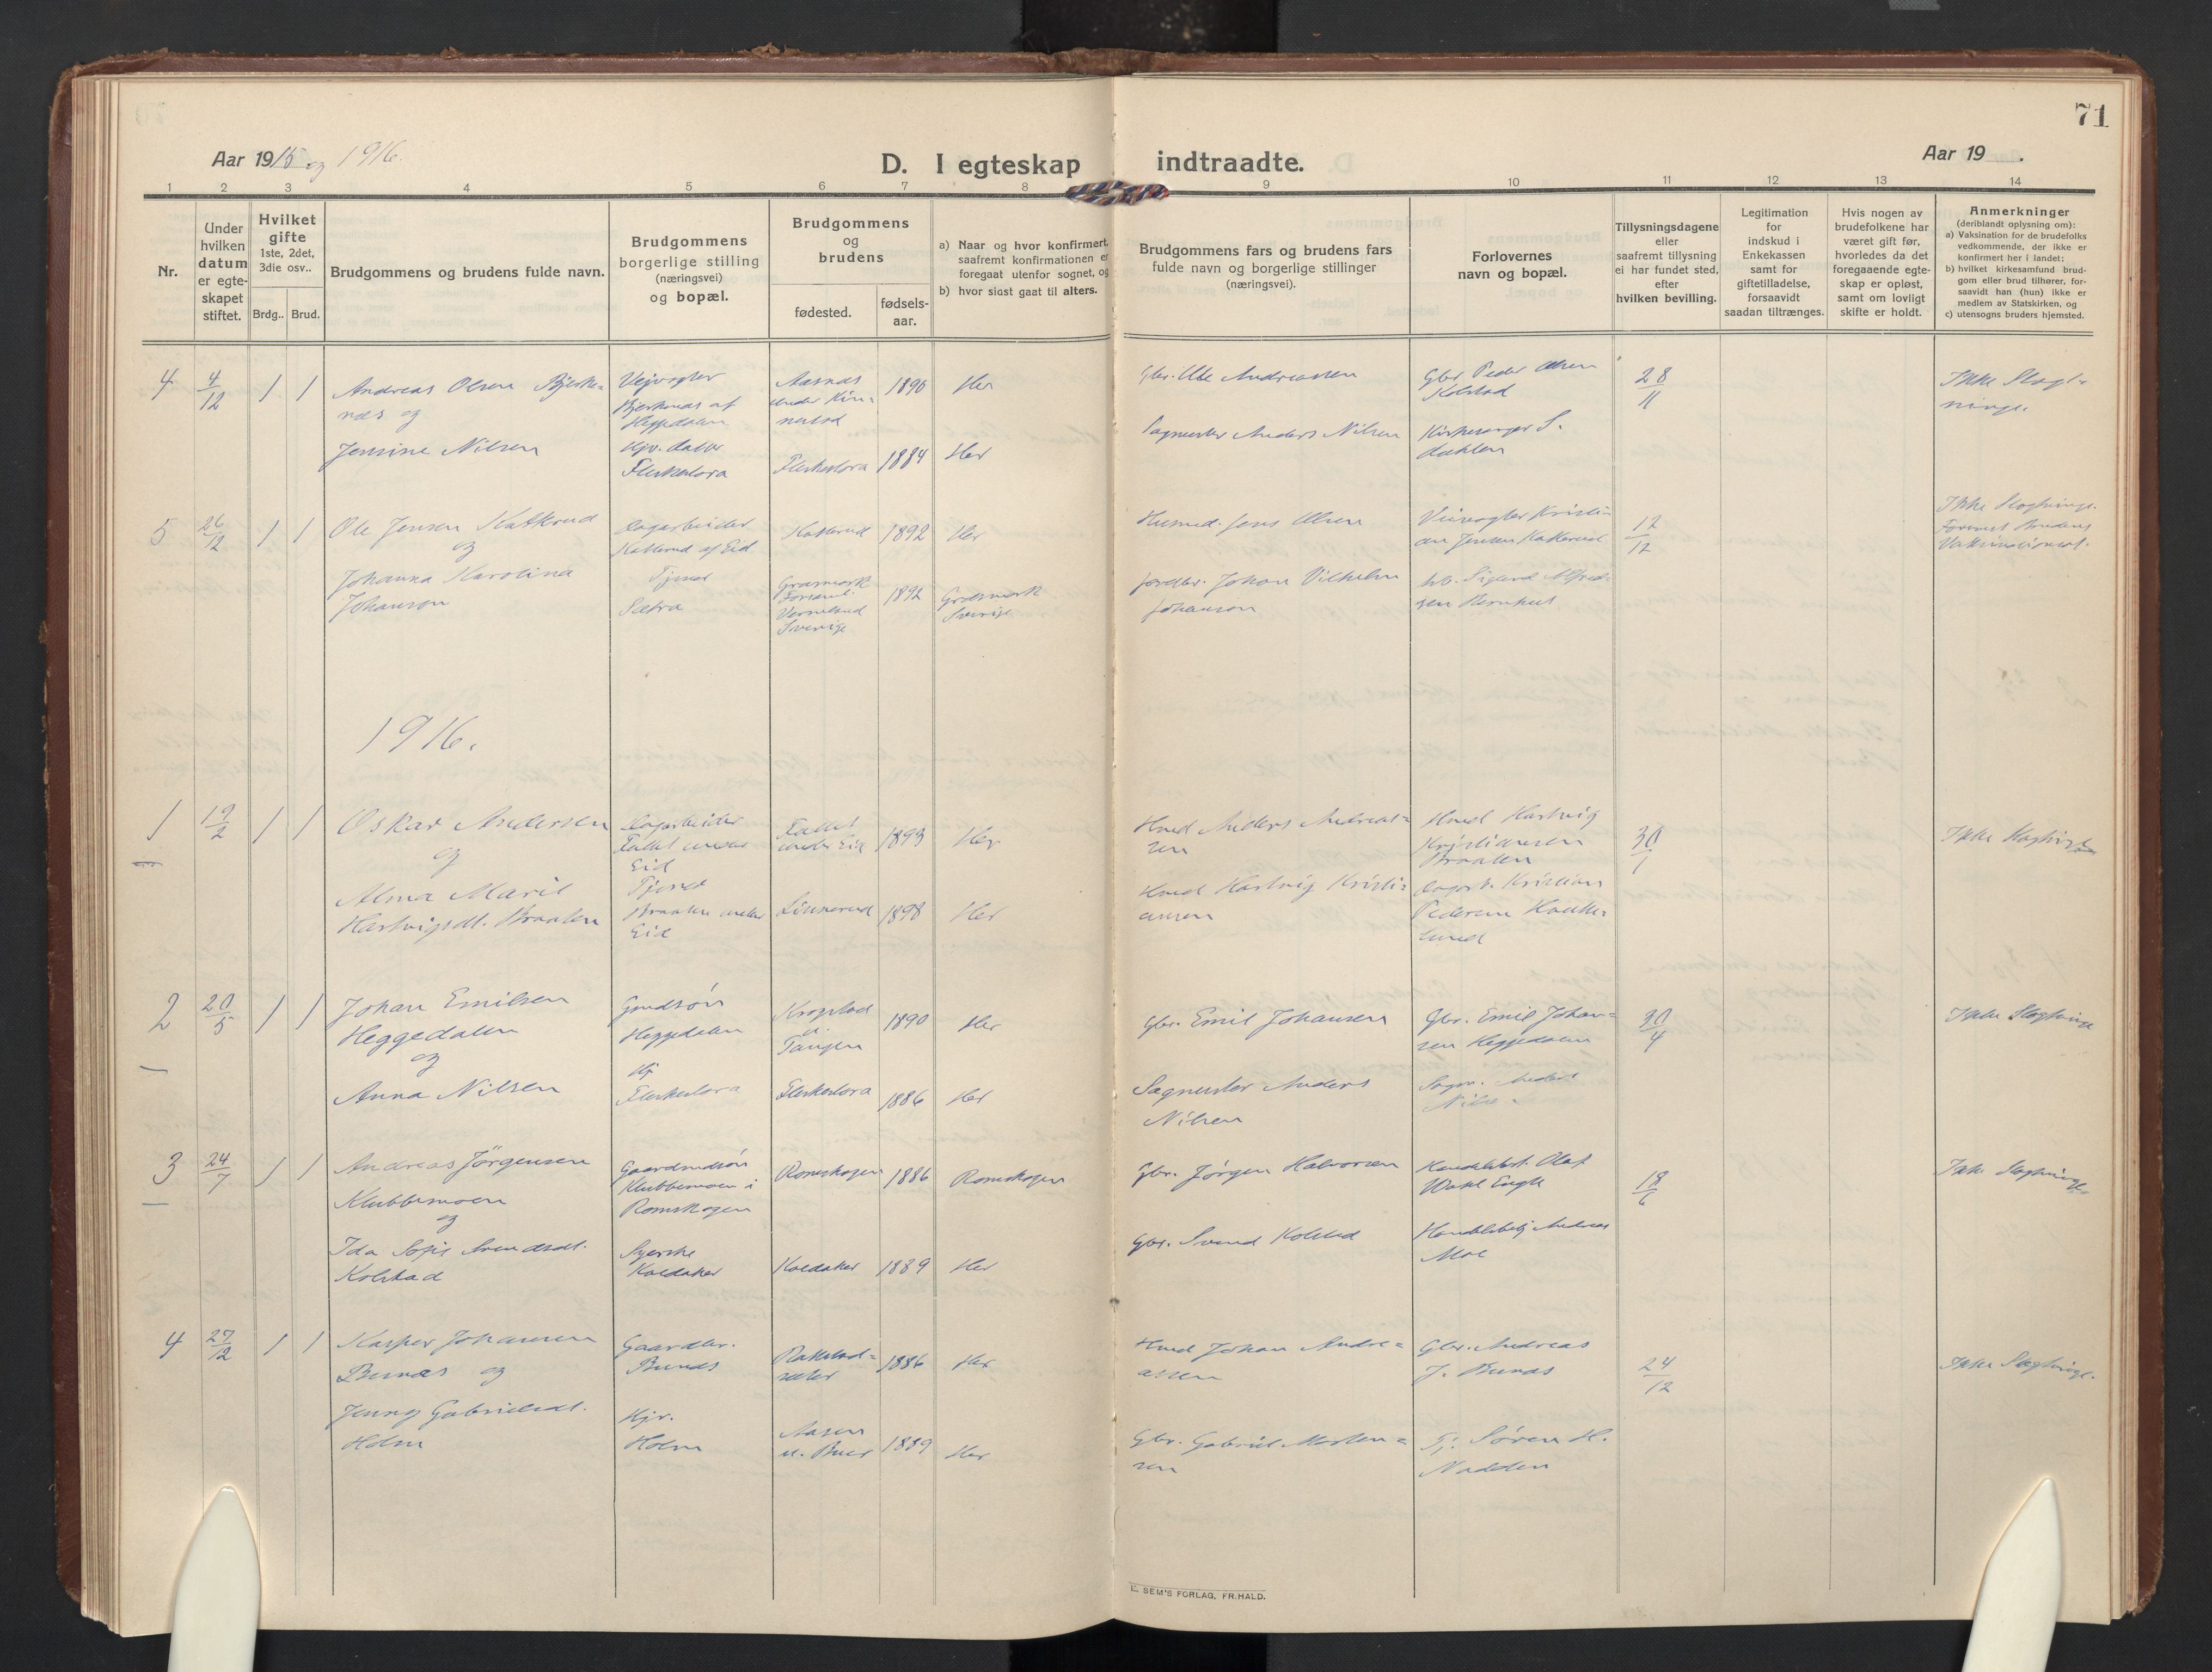 71
Aar 1915 og 1916.
D. I egteskap indtraadte.
Aar 19 .
1 2 3 4 5 6 7 8 9 10 11 12 13 14
Nr.
Under
hvilken
datum
er egte-
skapet
stiftet.
Hvilket
gifte
1ste, 2det,
3die osv..
Brdg.. Brud.
Brudgommens og brudens fulde navn.
Brudgommens
borgerlige stilling
(næringsvei)
og bopæl.
Brudgommens
og
brudens
fødested.
fødsels-
aar.
a) Naar og hvor konfirmert,
saafremt konfirmationen er
foregaat utenfor sognet, og
b) hvor sidst gaat til alters.
Brudgommens fars og brudens fars
fulde navn og borgerlige stillinger
(næringsvei).
Forlovernes
navn og bopæl.
Tillysningsdagene
eller
saafremt tillysning
ei har fundet sted,
efter
hvilken bevilling.
Legitimation
for
indskud i
Enkekassen
samt for
giftetilladelse,
forsaavidt
saadan tiltrænges.
Hvis nogen av
brudefolkene har
været gift før,
hvorledes da det
foregaaende egte-
skap er opløst,
samt om lovligt
skifte er holdt.
Anmerkninger
(deriblandt oplysning om):
a) Vaksination for de brudefolks
vedkommende, der ikke er
konfirmert her i landet;
b) hvilket kirkesamfund brud-
gom eller brud tilhører, for-
saavidt han (hun) ikke er
medlem av Statskirken, og
c) utensogns bruders hjemsted.
4
4/12
1 1
Andreas Olsen Bjerke=
næs og
Jensine Nilsen
Veivogter
Bjerkenæs af
Heggedalen
Hjv. datter
Fleskerora
Aasnæs
under Kin=
nestad
1890
Her
Fleskerora 1884 Her
Gbr. Ole Andreassen
Sagmester Anders Nilsen
Gbr. Peder Olsen
Kolstad
Kirkesanger S.
Dahlen
28/11
Ikke Slægt-
ninge.
5
26/12
1 1
Ole Jensen Katkerud
og
Johanna Karolina
Johanson
Dagarbeider
Katterud af Eid
Tjener
Sætra
Katterud 1892 Her
Græsmark
Forsaml.
Vermeland
Sverige
1892
Græsmark
Sverige
Husmd. Jens Olsen
Jordbr. Johan Vilhelm
Johanson
Veivogter Kristi-
an Jensen Katkerud
12/12
Ikke Slægtninge.
1916.
1
19/2
1 1
Oskar Andersen
og
Alma Marie
Hartvigsdt. Braaten
Dagarbeider
Fallet under
Eid
Tjener
Braaten under
Eid
Fallet
under Eid
1893
Her
Linnerud 1898 Her
Hmd Anders Andreas=
sen
Hmd Hartvig Kristi=
ansen
Hmd Hartvig
Kristiansen
Braaten
Dagarb. Kristian
Pedersen
30/1
Ikke Slægtninge
2
20/5
1 1
Johan Emilsen
Heggedalen
og
Anna Nilsen
Grmdsøn
Heggedalen
Hj
Fleskerora
Kropstad
u.
Tangen
1890
Her
Fleskerora 1886 Her
Gbr. Emil Johansen
Sagmester Anders
Nilsen
Gbr. Emil Johan=
sen Heggedalen
Sagm. Anders
Nilsen
30/4
Ikke Slægtninge
3
24/7
1 1
Andreas Jørgensen
Klubbemoen
og
Ida Sofie Svendsdt.
Kolstad
Gaardmdsøn
Klubbemoen i
Romskogen
Syerske
Kaldaker
Romskogen 1886 Romskogen
Kaldaker 1889 Her
Gbr. Jørgen Halvorsen
Gbr. Svend Kolstad
Handelsbst. Olaf
Handelsbetj Andreas
Moe
18/6
Ikke Slægtninge
4
27/12
1 1
Kasper Johansen
Bunæs og
Jenny Gabrielsdt.
Holm
Gaardbr.
Bunæs
Hjv.
Holm
Rakkestad=
sæter
1886
Her
Aasen
u. Buer
1889
Her
Hmd Johan Andre=
assen
Gbr. Gabriel Morten=
sen
Gbr. Andreas
J. Bunæs
Tj. Søren H.
Nadden
24/12
Ikke Slægtninge.
E. SEM'S FORLAG, FR.HALD.